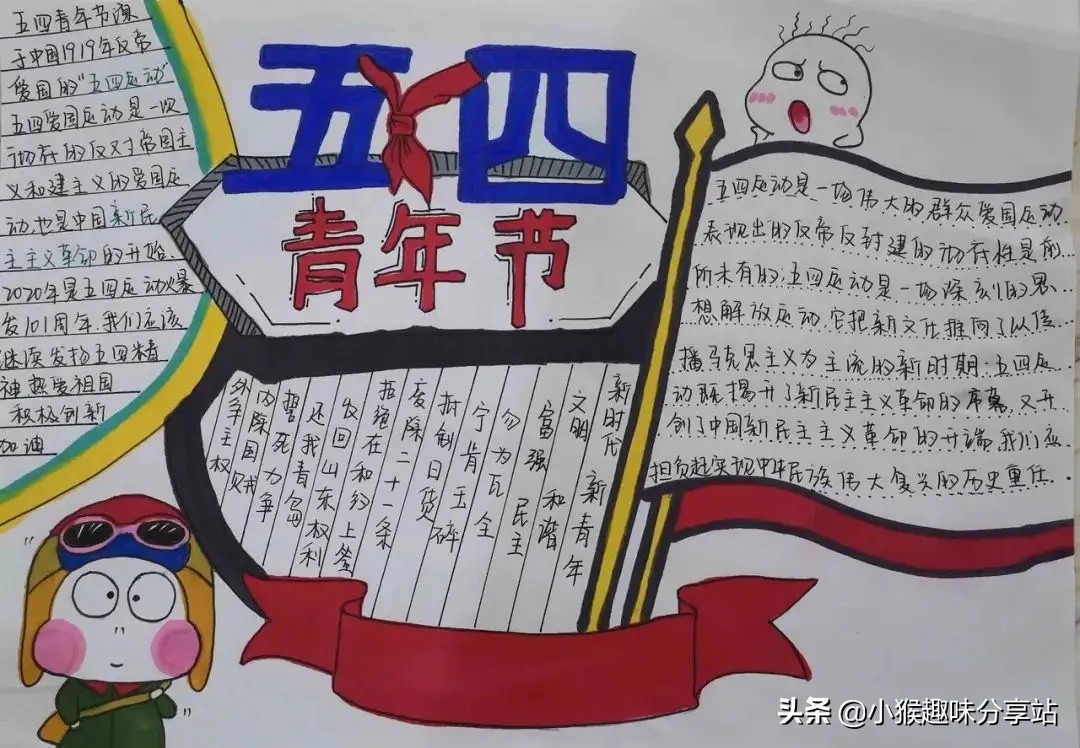 五四
青年节
五四青年节源
于中国1919年反帝
爱国的"五四运动"
五四爱国运动是一次
彻底的反对帝国主
义和建主义的爱国运
动也是中国新民
主主义革命的开始.
2020年是五四运动爆
发101周年.我们应该
继续发扬五四精
神热爱祖国
积极创新
加油
新时代 新青年
文明 和谐
富强 民主
勿为瓦全
宁肯玉碎
抵制日货
废除二十一条
拒绝在和约上签
收回山东权利
还我青岛
誓死力争
内除国贼
外争主权
五四运动是一场伟大的群众爱国运动.
表现出的反帝反封建的彻底性是前
所未有的.五四运动是一场深刻的思
想解放运动.它把新文化推向了以传
播马克思主义为主流的新时期.五四运
动既揭开了新民主主义革命的序幕,又开
创了中国新民主主义革命的开端.我们应
担负起实现中华民族伟大复兴的历史重任.
头条 @小猴趣味分享站